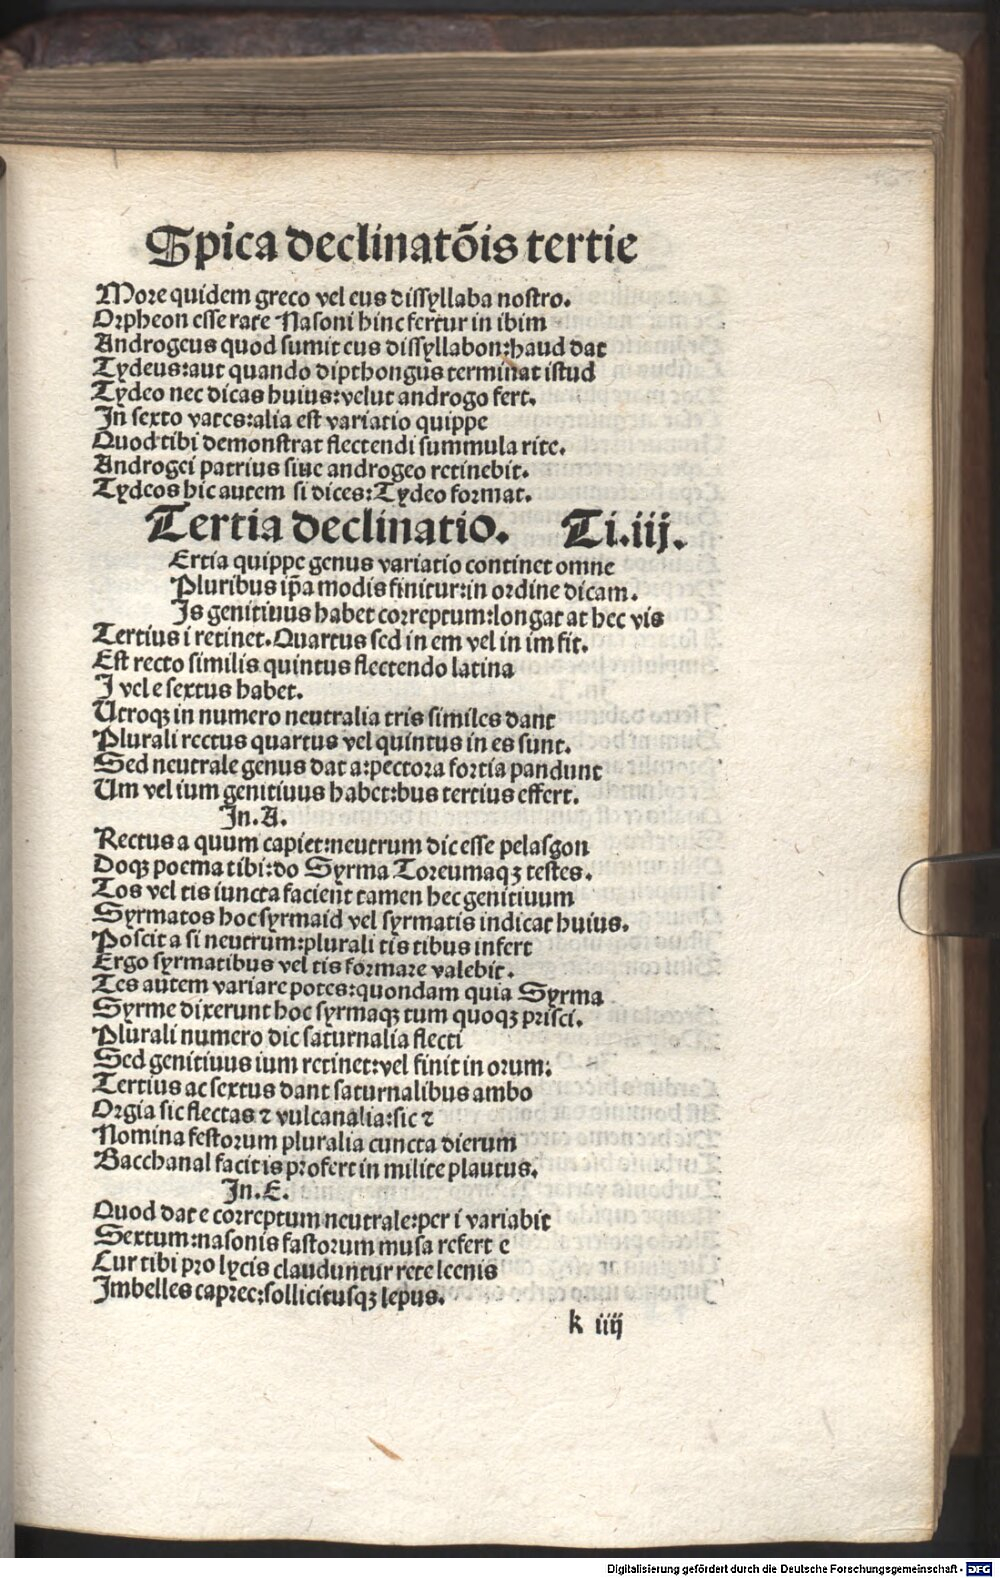 Spica declinatõis tertie
More quidem greco vel eus dissyllaba nostro.
Orpheon esse rate Nasoni hinc fertur in ibim
Androgeus quod sumit eus dissyllabon:haud dat
Tydeus:aut quando dipthongus terminat istud
Tydeo nec dicas huius:velut androgo fert.
In sexto vates:alia est variatio quippe
Quod tibi demonstrat flectendi summula rite.
Androgei patrius siue androgeo retinebit.
Tydeos hic autem si dices:Tydeo format.
Tertia declinatio. Ti.iij.
Ertia quippe genus variatio continet omne
Pluribus ip̃a modis finitur:in ordine dicam.
Is genitiuus habet correptum:longat at hec vis
Tertius i retinet.Quartus sed in em vel in im fit.
Est recto similis quintus flectendo latina
I vel e sextus habet.
Utroqꝫ in numero neutralia tris similes dant
Plurali rectus quartus vel quintus in es sunt.
Sed neutrale genus dat a:pectora fortia pandunt
Um vel ium genitiuus habet:bus tertius effert.
In.A.
Rectus a quum capiet:neutrum dic esse pelasgon
Doqꝫ poema tibi:do Syrma Toreumaqꝫ testes.
Tos vel tis iuncta facient tamen hec genitiuum
Syrmatos hoc syrmaid vel syrmatis indicat huius.
Poscit a si neutrum:plurali tis tibus infert
Ergo syrmatibus vel tis formare valebit.
Tes autem variare potes:quondam quia Syrma
Syrme dixerunt hoc syrmaqꝫ tum quoqꝫ prisci.
Plurali numero dic saturnalia flecti
Sed genitiuus ium retinet:vel finit in orum:
Tertius ac sextus dant saturnalibus ambo
Orgia sic flectas ⁊ vulcanalia:sic ⁊
Nomina festorum pluralia cuncta dierum
Bacchanal facit is profert in milite plautus.
In.E.
Quod dat e correptum neutrale:per i variabit
Sextum:nasonis fastorum musa refert e
Cur tibi pro lycis clauduntur rete leenis
Imbelles capree:sollicitusqꝫ lepus.
k iiij
Digitalisierung gefördert durch die Deutsche Forschungsgemeinschaft - DFG